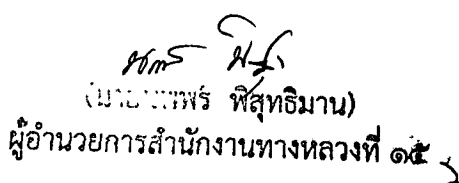 พิสุทธิมาน)
ผู้อำนวยการสำนักงานทางหลวงที่ ๑๕